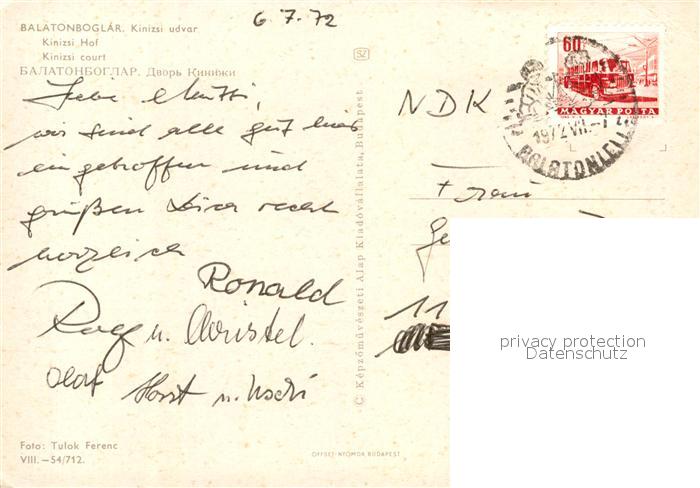 6.7.72
BALATONBOGLÁR. Kinizsi udvar
Kinizsi Hof
Kinizsi court
БАЛАТОНБОГЛАР. Дворь Кинижи
Liebe Mutti,
wir sind alle gut hier
eingetroffen und
grüßen Dich recht
herzlich
Ronald
Rolf u. Christel.
Olaf
Horst u. Uschi
Foto: Tulok Ferenc
VIII.—54/712.
SZ
© Képzőművészeti Alap Kiadóvállalata, Budapest
OFFSET-NYOMDA BUDAPEST
60f
MAGYAR POSTA
1972.VII.-7
BALATONLELLE
NDK
Frau
Ge
11
privacy protection
Datenschutz